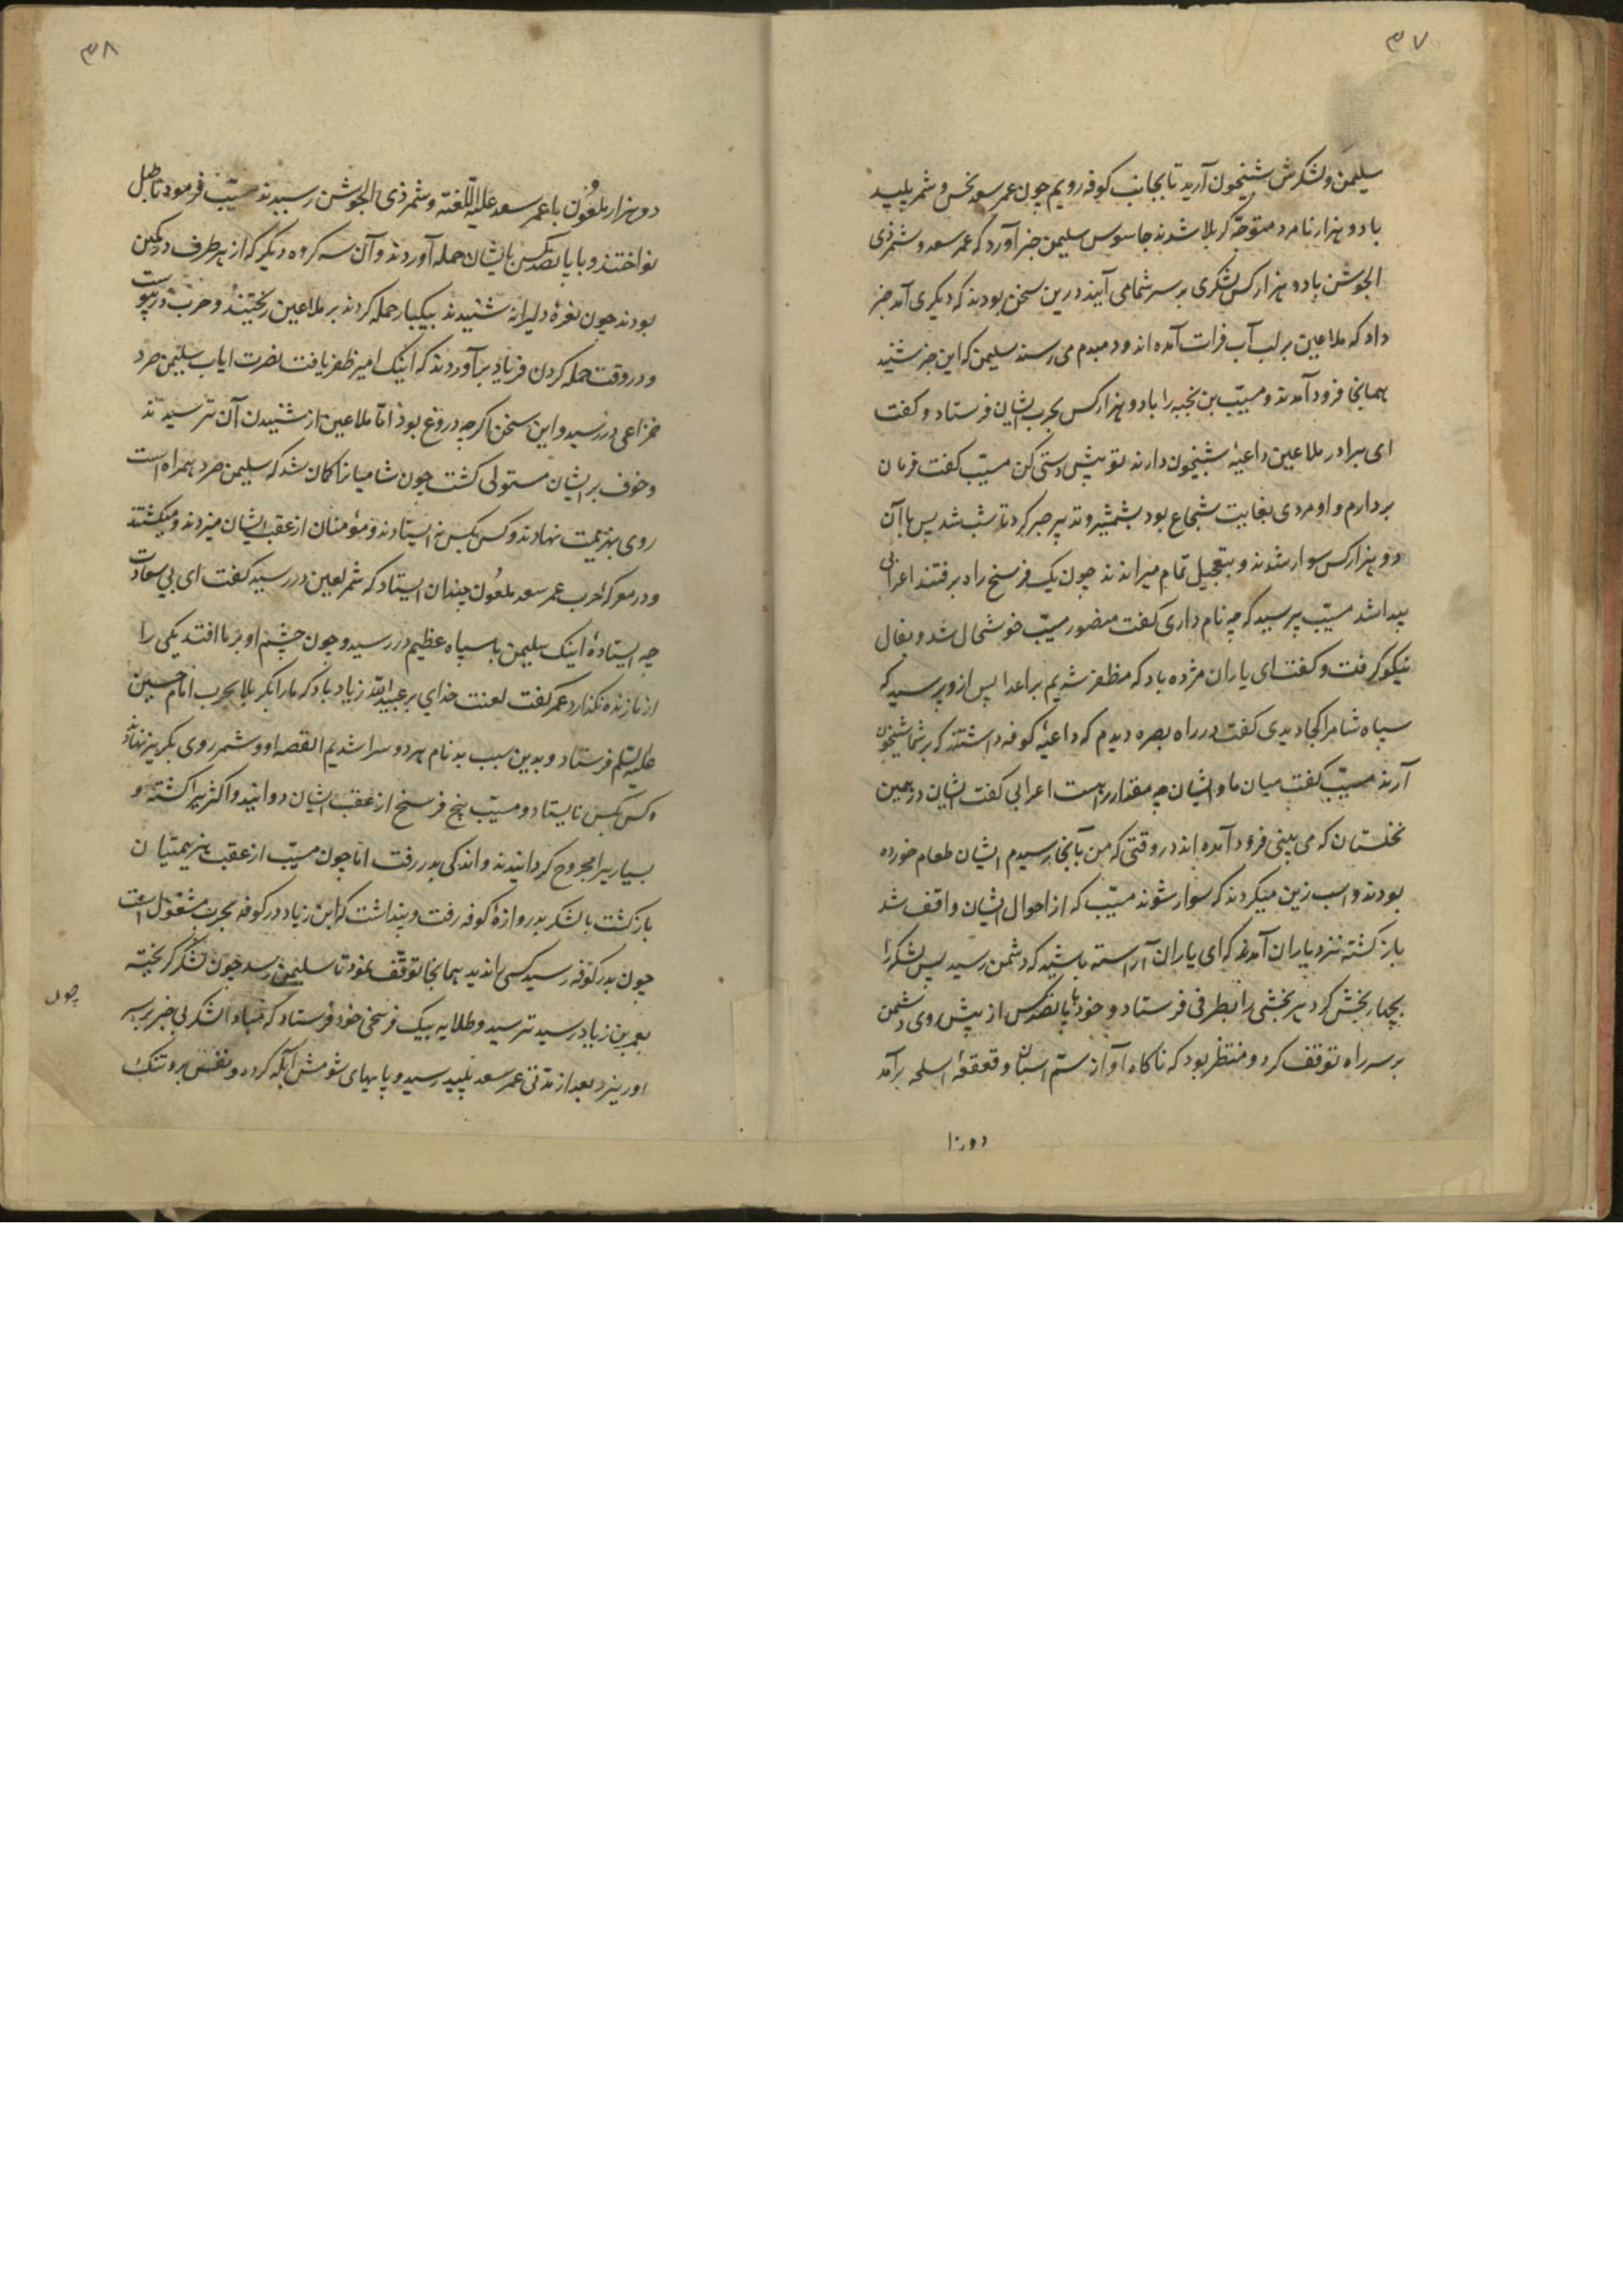 ۳۷
سلیمن و لشکرش شبیخون آرید تا بجانب کوفه رویم چون عمر سعد نحس و شمر پلید
با دو هزار نامرد متوجّه کربلا شدند جاسوس سلیمن خبر آورد که عمر سعد و شمر ذی
الجوشن با دو هزار کس لشکری بر سر شما می آیند درین سخن بودند که دیکری آمد خبر
داد که ملاعین بر لب آب فرات آمده اند و دمبدم می رسند سلیمن که این خبر شنید
همانجا فرود آمدند و مسیّب بن نجبه را با دو هزار کس بحرب ایشان فرستاد و کفت
ای برادر ملاعین داعیهٔ شبیخون دارند تو پیش دستی کن مسیّب کفت فرمان
بردارم و او مردی بغایت شجاع بود بشمشیر و تدبیر صبر کرد تا شب شد پس با آن
دو هزار کس سوار شدند و بتعجیل تمام میراندند چون یک فرسخ راه برفتند اعرابی
پیدا شد مسیّب پرسید که چه نام داری کفت منصور مسیّب خوشحال شد و بفال
نیکو کرفت و کفت ای یاران مژده باد که مظفر شدیم بر اعدا پس ازو پرسید که
سپاه شام را کجا دیدی کفت در راه بصره دیدم که داعیهٔ کوفه داشتند که بر شما شبیخون
آرند مسیّب کفت میان ما و ایشان چه مقدار راهست اعرابی کفت ایشان در همین
نخلستان که می بینی فرود آمده اند در وقتی که من بآنجا رسیدم ایشان طعام خورده
بودند و اسب زین میکردند که سوار شوند مسیّب که از احوال ایشان واقف شد
باز کشته نزد یاران آمد که ای یاران آراسته باشید که دشمن رسید پس لشکر را
بچهار بخش کرد هر بخشی را بطرفی فرستاد و خود با پانصد کس از پیش روی دشمن
بر سر راه توقف کرد و منتظر بود که ناکاه آواز سم اسبان و قعقعهٔ اسلحه برآمد
دو هزار
۳۸
دو هزار ملعون با عمر سعد علیه اللّعنه و شمر ذی الجوشن رسیدند مسیّب فرمود تا طبل
نواختند و با پانصد کس بایشان حمله آوردند و آن سه کروه دیکر که از هر طرف در کمین
بودند چون نعرهٔ دلیرانه شنیدند بیکبار حمله کردند بر ملاعین ریختند و حرب در پیوست
و در وقت حمله کردن فریاد برآوردند که اینک امیر ظفر یافت نصرت ایاب سلیمن صرد
خزاعی در رسید و این سخن اکرچه دروغ بود امّا ملاعین از شنیدن آن ترسیدند
و خوف بر ایشان مستولی کشت چون شامیانرا کمان شد که سلیمن صرد همراه است
روی بهزیمت نهادند و کس بکس نه ایستادند و مؤمنان از عقب ایشان میزدند و میکشتند
و در معرکهٔ حرب عمر سعد ملعون چندان ایستاد که شمر لعین در رسید کفت ای بی سعادت
چه ایستادهٔ اینک سلیمن با سپاه عظیم در رسید و چون چشم او بر ما افتد یکی را
از ما زنده نکذارد عمر کفت لعنت خدای بر عبید اللّه زیاد باد که ما را بکربلا بحرب امام حسین
علیه السّلم فرستاد و بدین سبب بدنام هر دو سرا شدیم القصه او و شمر روی بکریز نهادند
و کس بکس نایستاد و مسیّب پنج فرسخ از عقب ایشان دوانید و اکثر را کشته و
بسیاریرا مجروح کردانیدند و اندکی بدر رفت امّا چون مسیّب از عقب هزیمتیان
باز کشت با لشکر بدروازهٔ کوفه رفت و پنداشت که ابن زیاد در کوفه بحرب مشغول است
چون بدر کوفه رسید کسی را ندید همانجا توقّف نمود تا سلیمن رسد چون لشکر کریخته
بعمر بن زیاد رسید ترسید و طلایه بیک فرسخی خود فرستاد که مبادا لشکر بی خبر بر سر
او ریزد بعد از مدّتی عمر سعد پلید رسید و پایهای شومش آبله کرده و نفس برو تنک
چون